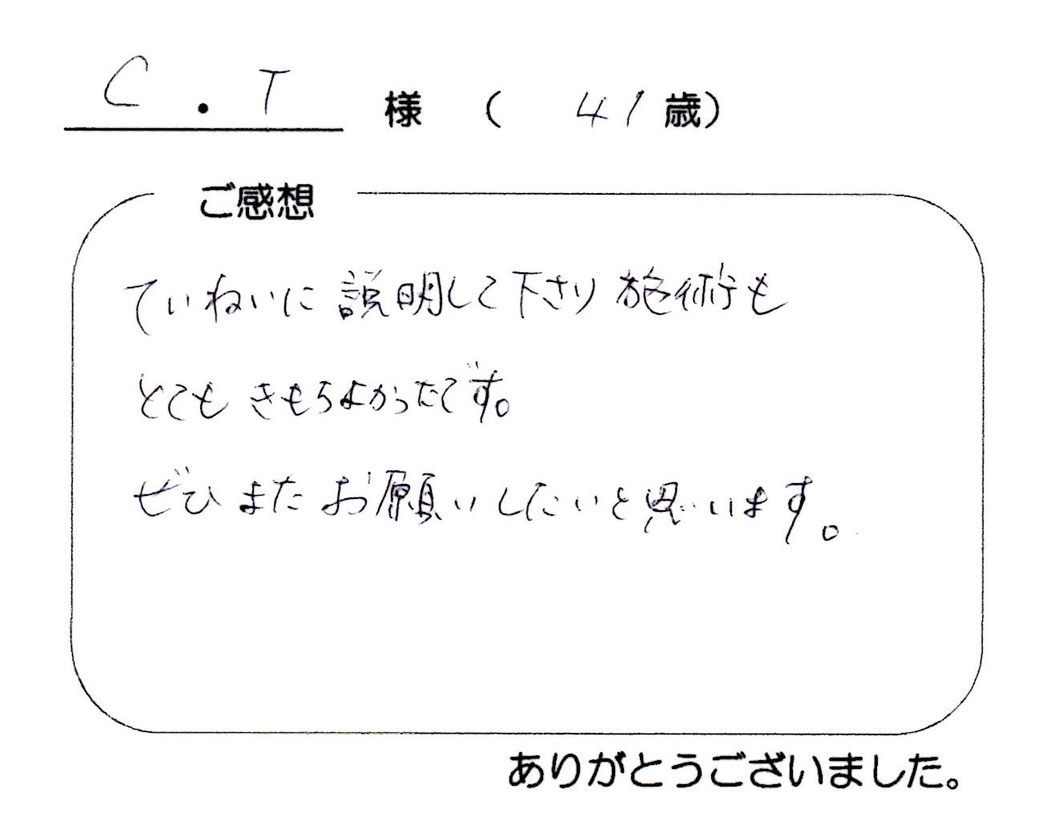 C . T 様 ( 41 歳)
ご感想
ていねいに 説明して下さり 施術も
とても きもちよかったです。
ぜひ また お願いしたいと思います。
ありがとうございました。